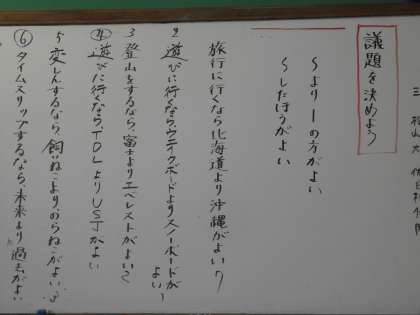 議題を決めよう
〜より〜の方がよい
〜したほうがよい
旅行に行くなら北海道より沖縄がよい
2 遊びに行くならウエイクボードよりスノーボードがよい
3 登山をするなら、富士よりエベレストがよい
④ 遊びに行くなら、TDLよりUSJがよい
5 変しんするなら、飼いねこよりのらねこがよい
⑥ タイムスリップするなら、未来より過去がよい